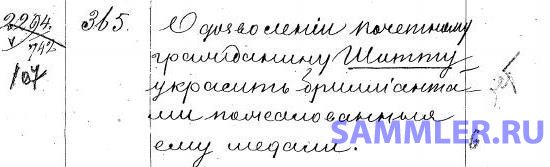 2294. 365. О дозволеніи почетному
742
107
гражданину Шитту
украсить брилліанта-
ми пожалованныя
ему медали. 6
SAMMLER.RU